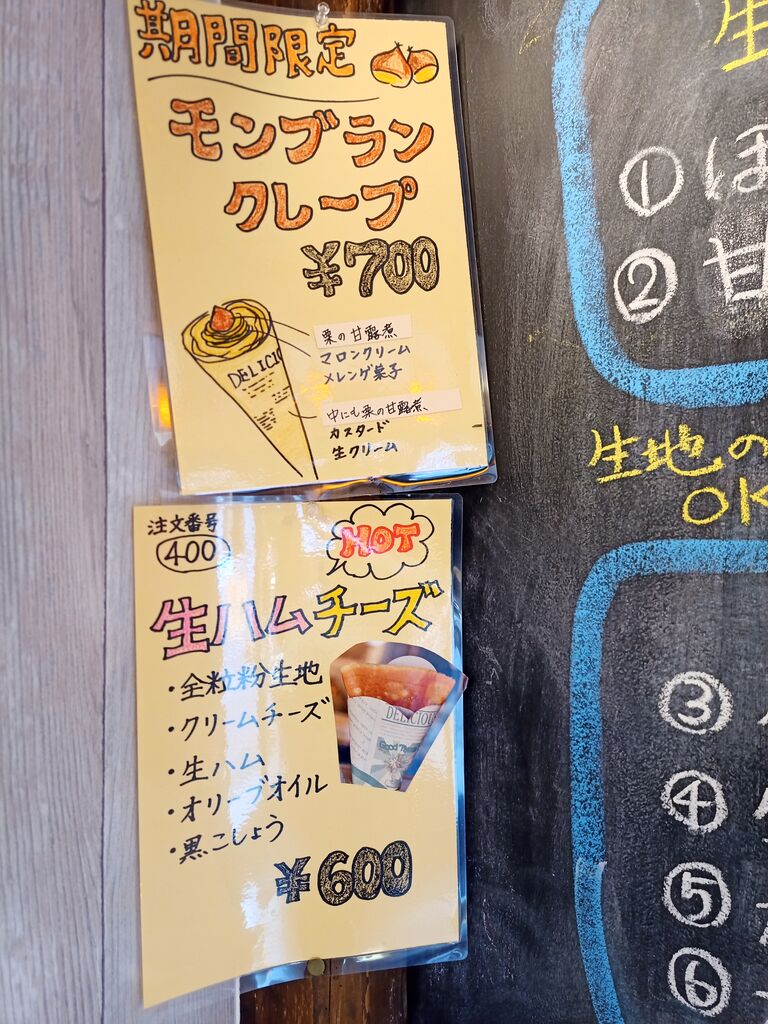 期間限定
モンブラン
クレープ
¥700
栗の甘露煮
マロンクリーム
メレンゲ菓子
DELICIO
中にも栗の甘露煮、
カスタード
生クリーム
注文番号
400
HOT
生ハムチーズ
・全粒粉生地
・クリームチーズ
・生ハム
・オリーブオイル
・黒こしょう
DELICIOU
¥600
生
① ほ
② 甘
生地の
OK
③
④
⑤
⑥